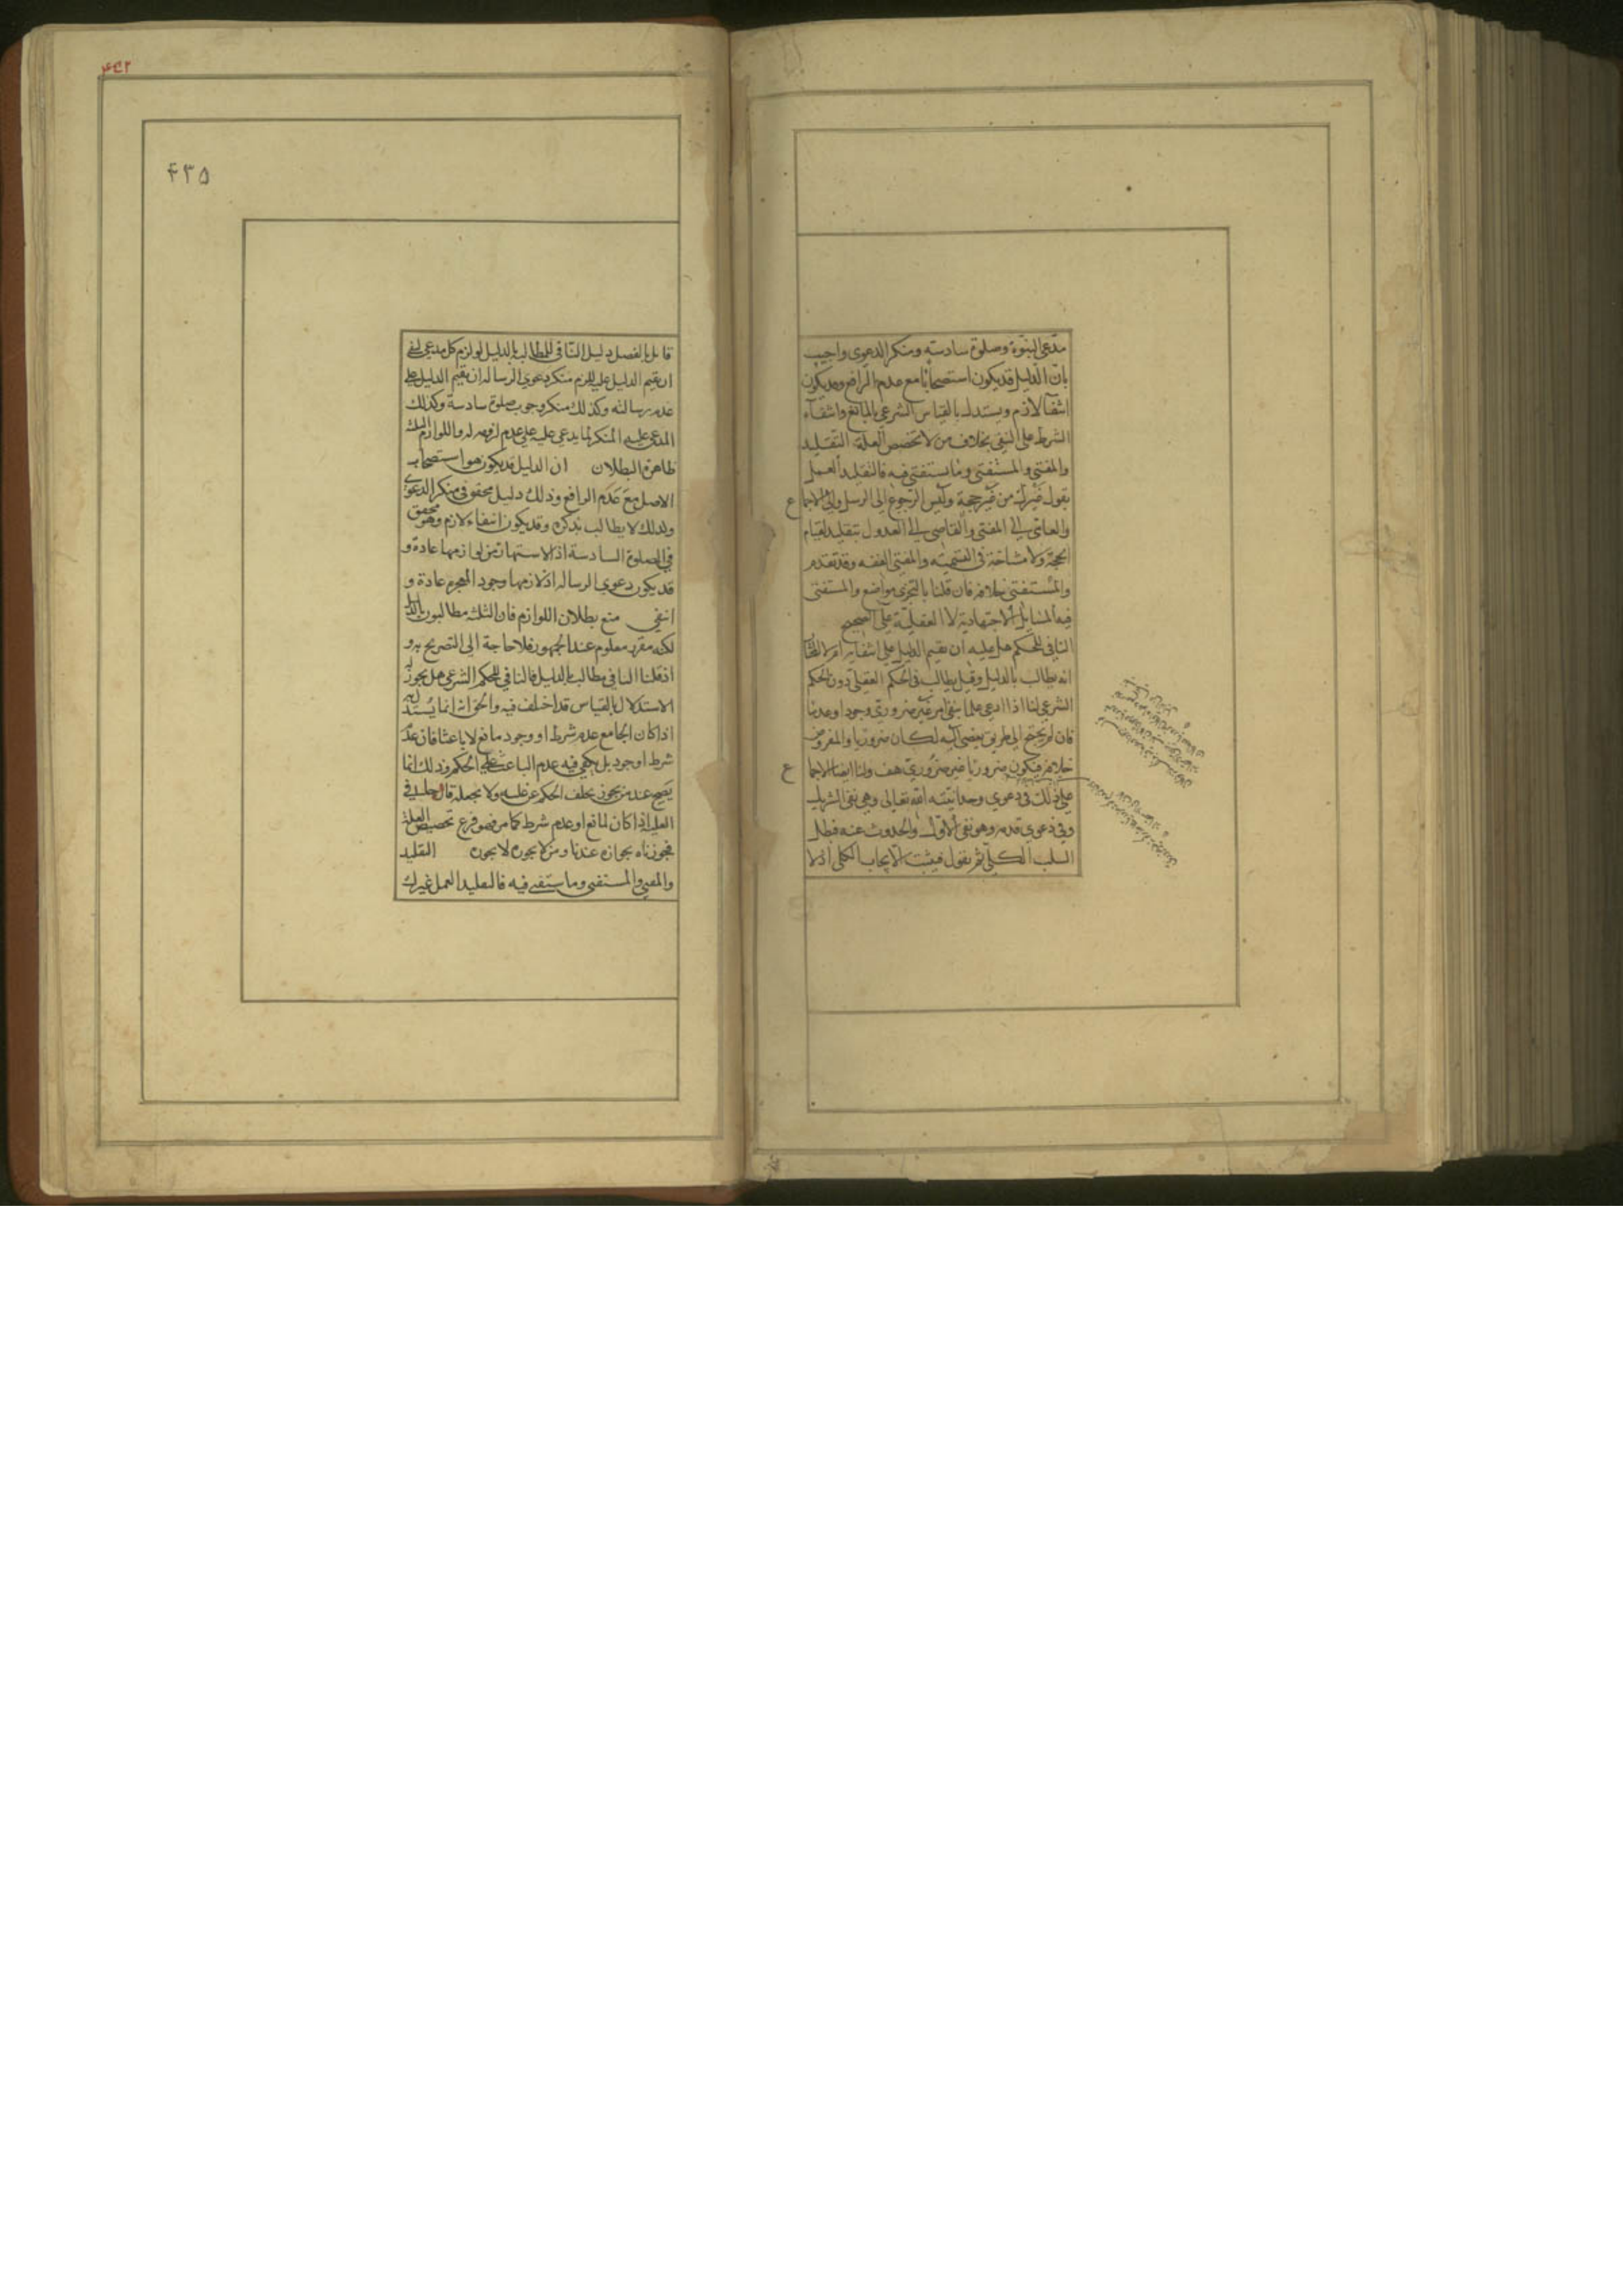 مدعى النبوة وصلوة سادسة ومنكر الدعوى واجيب
بان الدليل قد يكون استصحابا مع عدم الرافع وقد يكون
انتفآ لازم ويستدل بالقياس الشرعى بالمانع وانتفآء
الشرط على النفى بخلاف من لا يخصص العلة التقليد
والمفتى والمستفتى وما يستفتى فيه فالتقليد العمل
بقول غيرك من غير حجة وليس الرجوع الى الرسل والى الاجما
ع
والعامى الى المفتى والقاضى الى العدول بتقليد لقيام
الحجة ولا مشاحة فى التسمية والمفتى الفقيه وقد تقدم
والمستفتى خلافه فان قلنا بالتجزى فواضح والمستفتى
فيه المسايل الاجتهادية لا العقلية على الصحيح
النافى للحكم هل عليه ان يقيم الدليل على انتفائه ام لا
انه يطالب بالدليل وقيل يطالب فى الحكم العقلى دون الحكم
الشرعى لنا اذا ادعى علما بنفى امر غير ضرورى وجودا وعدما
فان لم يحتج الى طريق يفضى اليه لكان ضروريا والمفروض
خلافه فيكون ضروريا غير ضرورى هف ولنا ايضا الاجما
ع
على ذلك فى دعوى وحدانيته الله تعالى وهى نفى الشريك
وفى دعوى قدمه وهو نفى الاول والحدوث عنه فبطل
السلب الكلى ثم نقول فيثبت الايجاب الكلى اذ لا
۴۳۵
قايل بالفصل دليل النافى للمطالب بالدليل لو لزم كل مدعى نفى
ان يقيم الدليل عليه للزم منكر دعوى الرساله ان يقيم الدليل على
عدم رسالته وكذلك منكر وجوب صلوة سادسة وكذلك
المدعى عليه المنكر لما يدعى عليه على عدم لزومه له واللوازم
ظاهرة البطلان ان الدليل قد يكون هو استصحاب
الاصل مع عدم الرافع وذلك دليل محقق فى منكر الدعوى
ولذلك لا يطالب بذكره وقد يكون انتفاء لازم وهو محقق
فى الصلوة السادسة اذ الاشتهار من لوازمها عادة و
قد يكون دعوى الرساله اذ لازمها وجود المعجزة عادة و
انتفى منع بطلان اللوازم فان الثلثة مطالبون
لكنه مقرر معلوم عند الجمهور فلا حاجة الى التصريح به و
اذ قلنا النافى مطالب بالدليل فالنافى للحكم الشرعى هل يجوز له
الاستدلال بالقياس قد اختلف فيه والحق انه انما يستدل به
اذا كان الجامع عدم شرط او وجود مانع لا باعثا فان عدم
شرط او وجود بل يكفى فيه عدم الباعث على الحكم وذلك انما
يصح عند من يجوز تخلف الحكم عن علته ولا يجعله قادحا فى
العلية اذا كان لمانع او عدم شرط كما مر فهو فرع تخصيص العلة
فجوزناه بجوازه عندنا ومن لا يجوزه لا يجوزه التقليد
والمفتى والمستفتى وما يستفتى فيه فالتقليد العمل غيرك